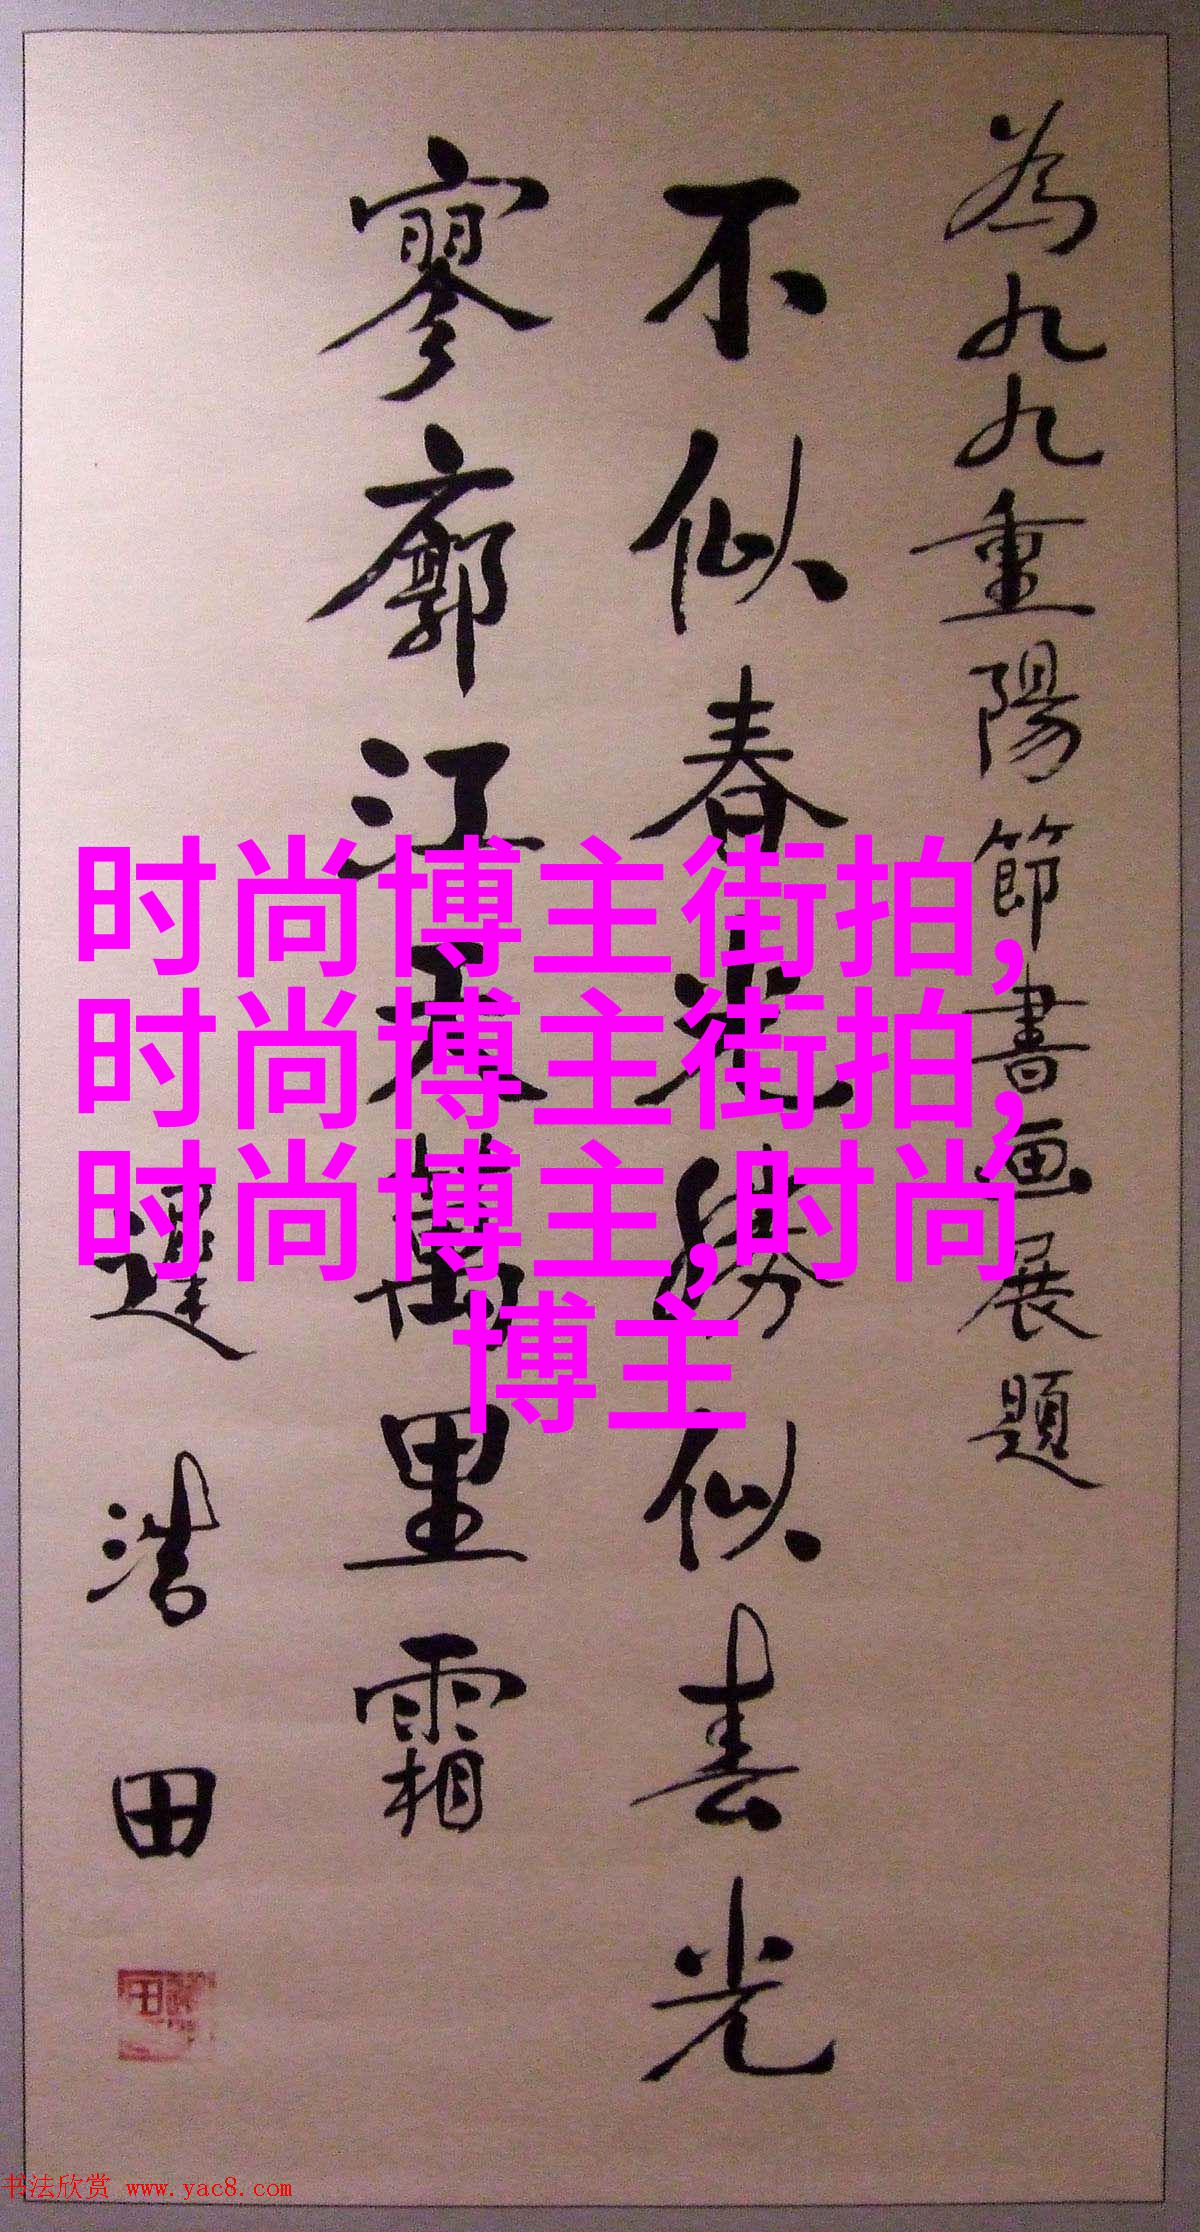 為九九重陽節書画展題
不似春光勝似春光
寥廓江天萬里霜
遲浩田
时尚博主街拍,
时尚博主街拍,
时尚博主,时尚
博主
书法欣赏 www.yac8.com